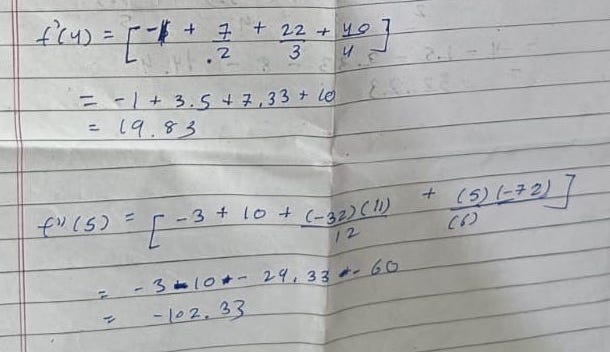 f'(4) = [-1 + 7/.2 + 22/3 + 40/4]
= -1 + 3.5 + 7.33 + 10
= 19.83
f''(5) = [-3 + 10 + (-32)(11)/12 + (5)(-72)/(6)]
= -3 - 10 + - 29.33 + - 60
= -102.33